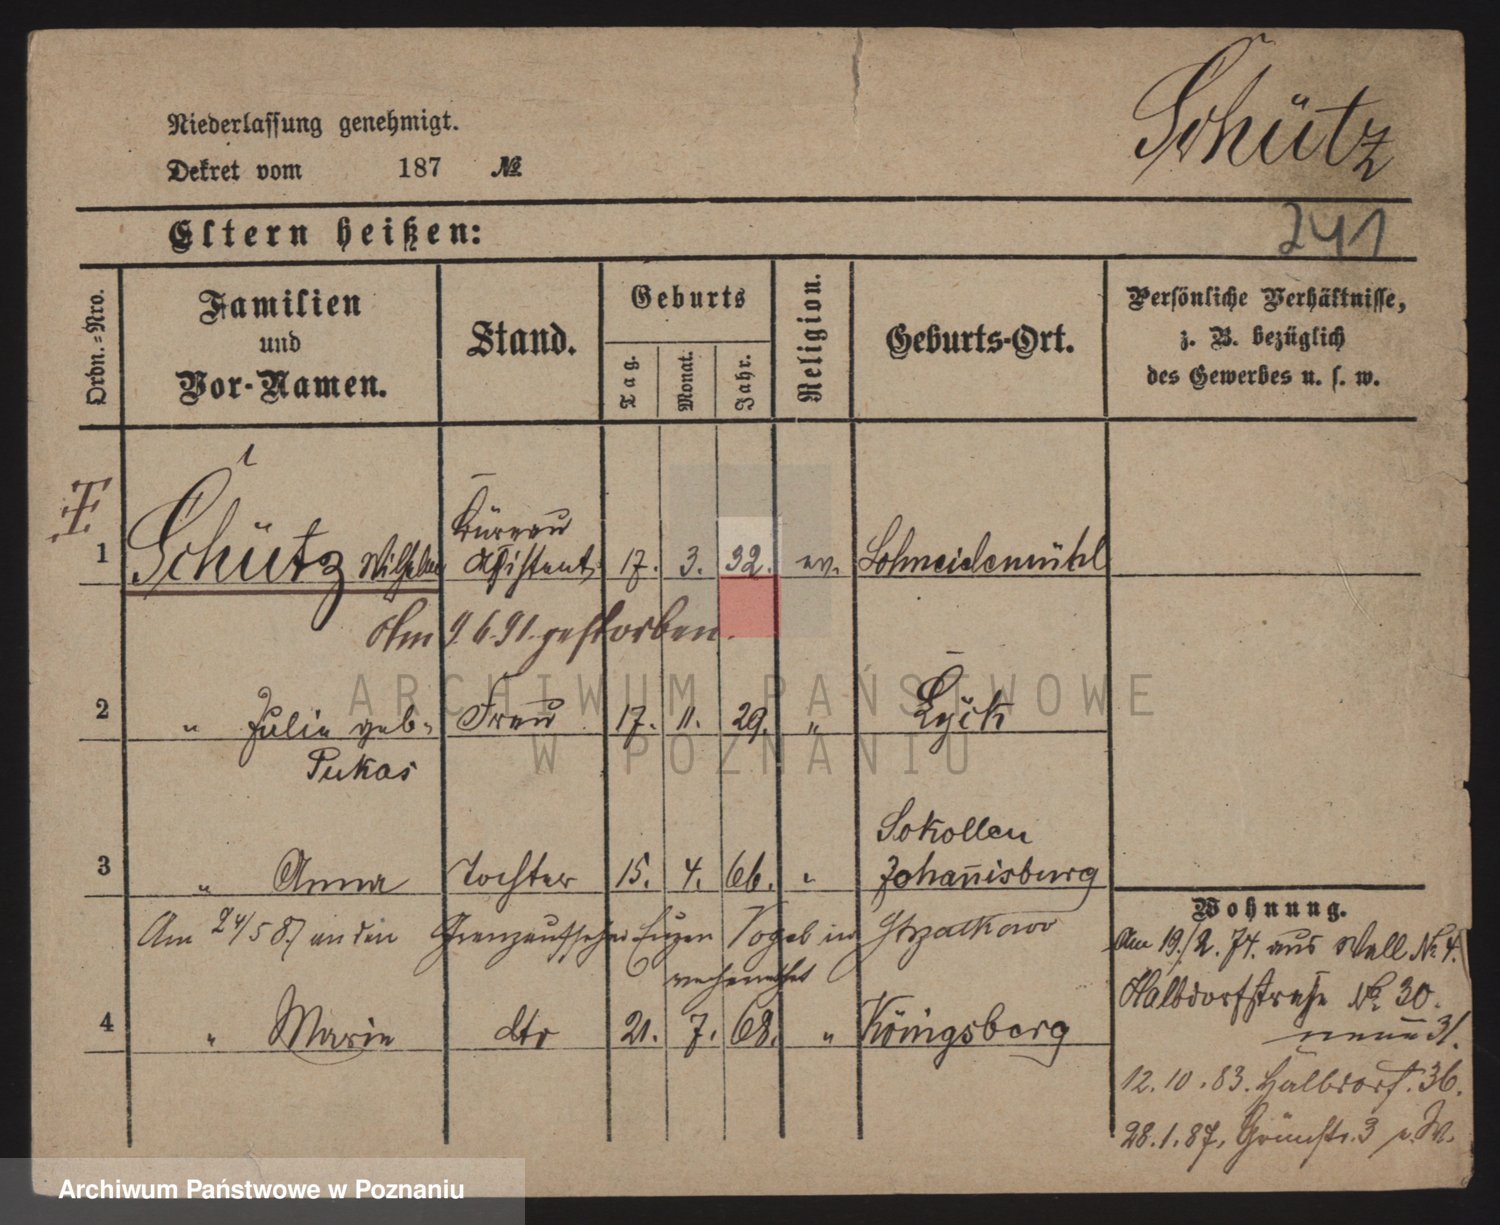 Schütz
Niederlassung genehmigt.
Dekret vom 187 №
241
Eltern heißen:
Ordn.-Nro.
Familien
und
Vor-Namen.
Stand.
Geburts
Tag.
Monat.
Jahr.
Religion.
Geburts-Ort.
Persönliche Verhältnisse,
z. B. bezüglich
des Gewerbes u. s. w.
F.
1 Schütz Wilhelm Büreau Assistent 17. 3. 32. ev. Schneidemühl
Am 9.6.91. gestorben.
2 " Julie geb. Frau 17. 11. 29. " Lyck
Pukas
3 " Anna Tochter 15. 4. 66. " Sokollen Johannisburg
Am 24/5 87 an den Grenzaufseher Eugen Vogel in
verheirathet
4 " Marie dtr 21. 7. 68. " Königsberg
Wohnung.
Am 19./2. 74. aus Wall № 4.
Halbdorfstraße № 30.
neue 31.
12.10.83. Halbdorf. 36.
28.1.87. Grünstr. 3
ARCHIWUM PAŃSTWOWE
W POZNANIU
Archiwum Państwowe w Poznaniu